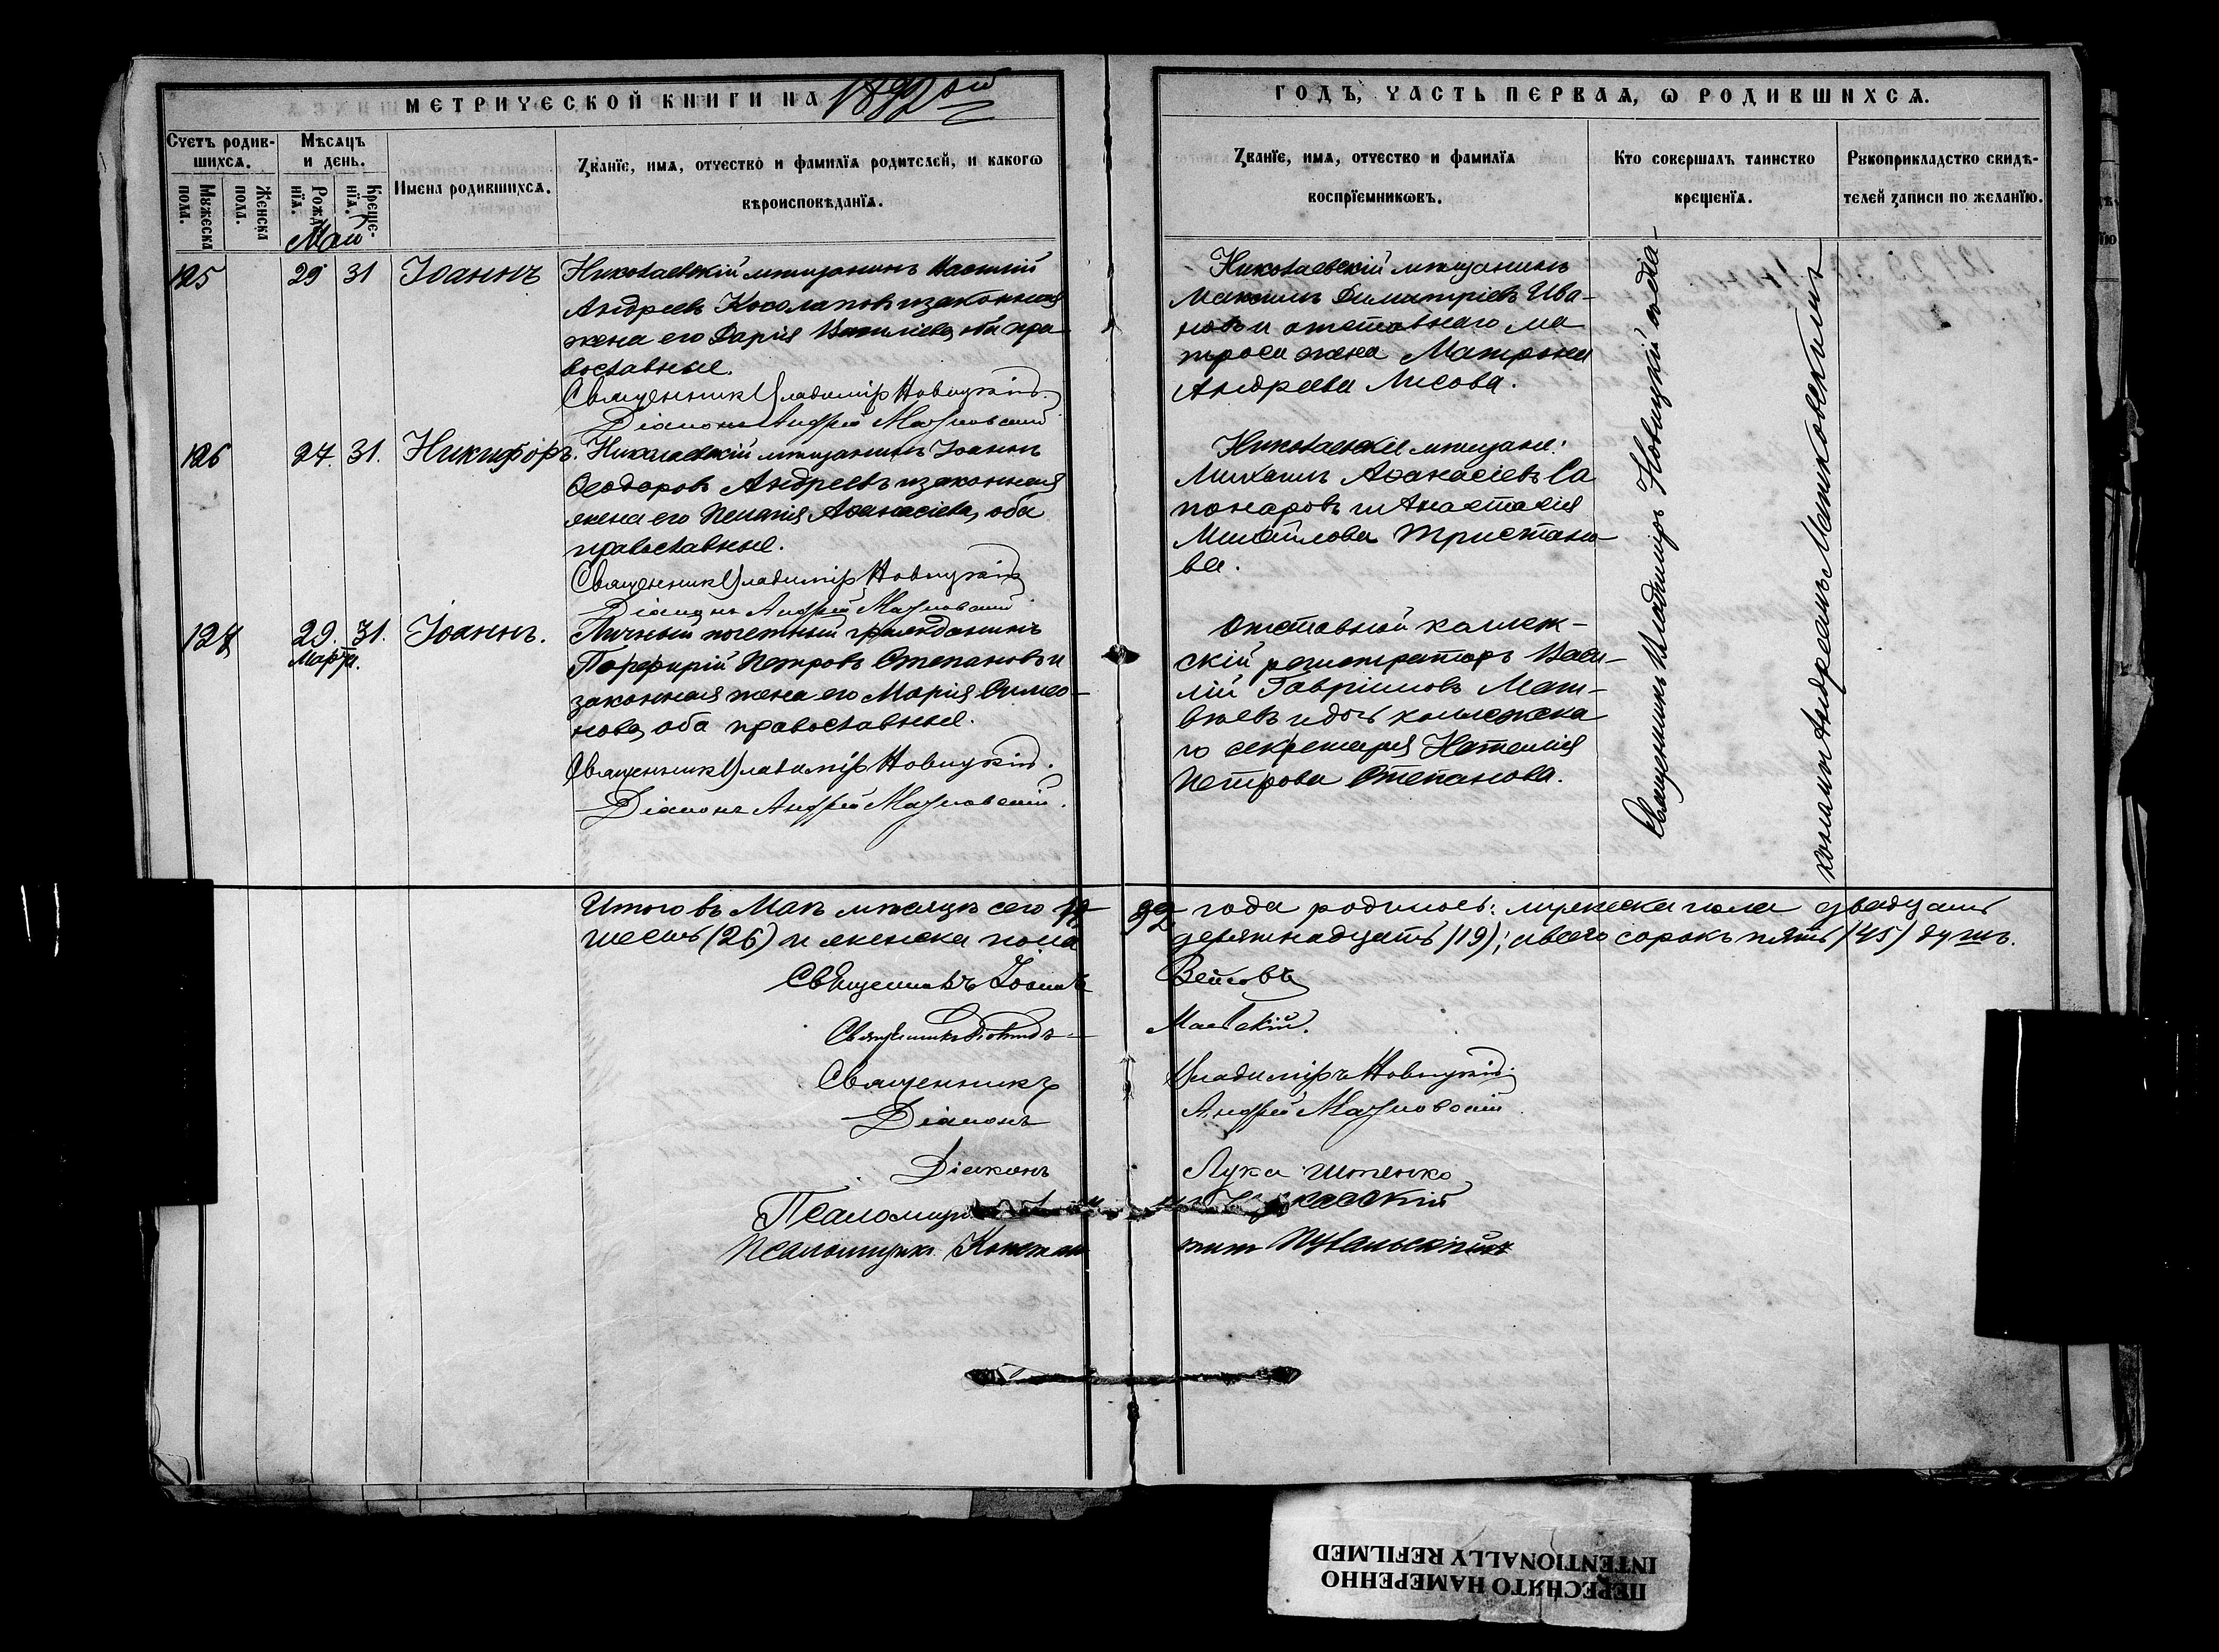 МЕТРИЧЕСКОЙ КНИГИ НА 1892 ой
ГОДЪ, ЧАСТЬ ПЕРВАѦ, Ѡ РОДИВШИХСѦ.
Счетъ родив-
шихсѧ.
Мѣсѧцъ
и день.
Мужеска
пола.
Женска
пола.
Рожде-
нїѧ.
Креще-
нїѧ.
Имена родившихсѧ.
Званїе, имѧ, отчество и фамилїѧ родителей, и какогѡ
вѣроисповѣданїѧ.
Званїе, имѧ, отчество и фамилїѧ
воспрїемникѡвъ.
Кто совершалъ таинство
крещенїѧ.
Рукоприкладство свидѣ-
телей записи по желанїю.
Май
125 29 31 Іоаннъ
Николаевскій мѣщанинъ Василій
Андреевъ Косолаповъ и законная
жена его Дарія Василіева, оба пра-
вославные.
Священникъ Владиміръ Новицкій.
Діаконъ Андрей
Николаевскій мѣщанинъ
Максимъ Димитріевъ Ива-
новъ и отставнаго ма
троса жена Матрона
Андреева Лисова.
126 27. 31. Никифоръ.
Николаевскій мѣщанинъ Іоаннъ
Ѳеодоровъ Андреевъ и законная
жена его Пелагія Аѳанасіева, оба
православные.
Священникъ Владиміръ Новицкій
Діаконъ Андрей
Николаевскіе мѣщане:
Михаилъ Аѳанасіевъ Са
понаровъ и Анастасія
Михайлова Тристано-
ва.
127 29. 31. Іоаннъ.
Марта.
Личный почетный гражданинъ
Порфирій Петровъ Степановъ и
законная жена его Марія Симео-
нова, оба православные.
Священникъ Владиміръ Новицкій.
Діаконъ Андрей
Отставной коллеж-
скій регистраторъ Васи-
лій Гавріиловъ Мат-
вѣевъ и дочь коллежска
го секретаря Наталія
Петрова Степанова.
Священникъ Владиміръ Новицкій съ діа-
кономъ Андреемъ
Итого въ Маѣ мѣсяцѣ сего 1892 года родилось: мужеска пола двадцать
шесть (26) и женска пола девятнадцать (19); всего сорокъ пять (45) душъ.
Священникъ Іоаннъ
Священникъ
Священникъ Владиміръ Новицкій.
Діаконъ Андрей
Діаконъ Лука
Псаломщикъ
Псаломщикъ Констан тинъ
ПЕРЕСНЯТО НАМЕРЕННО
INTENTIONALLY REFILMED